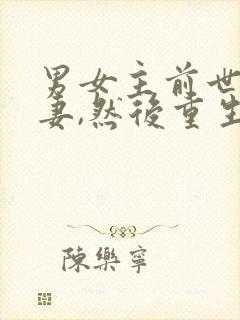 男女主前世
妻,然後重生
陳樂寧